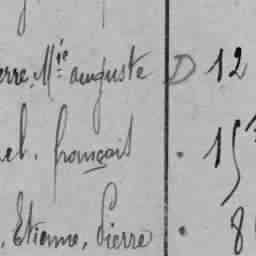 erre, Mie auguste D 12
el. françois . 15
, Etienne, Pierre . 8